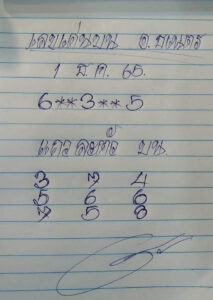 เลขเด่นบน อ.ธนกร
1 มี.ค. 65.
6**3**5
แถว สองตัว บน
3 3 4
5 6 6
7 5 8